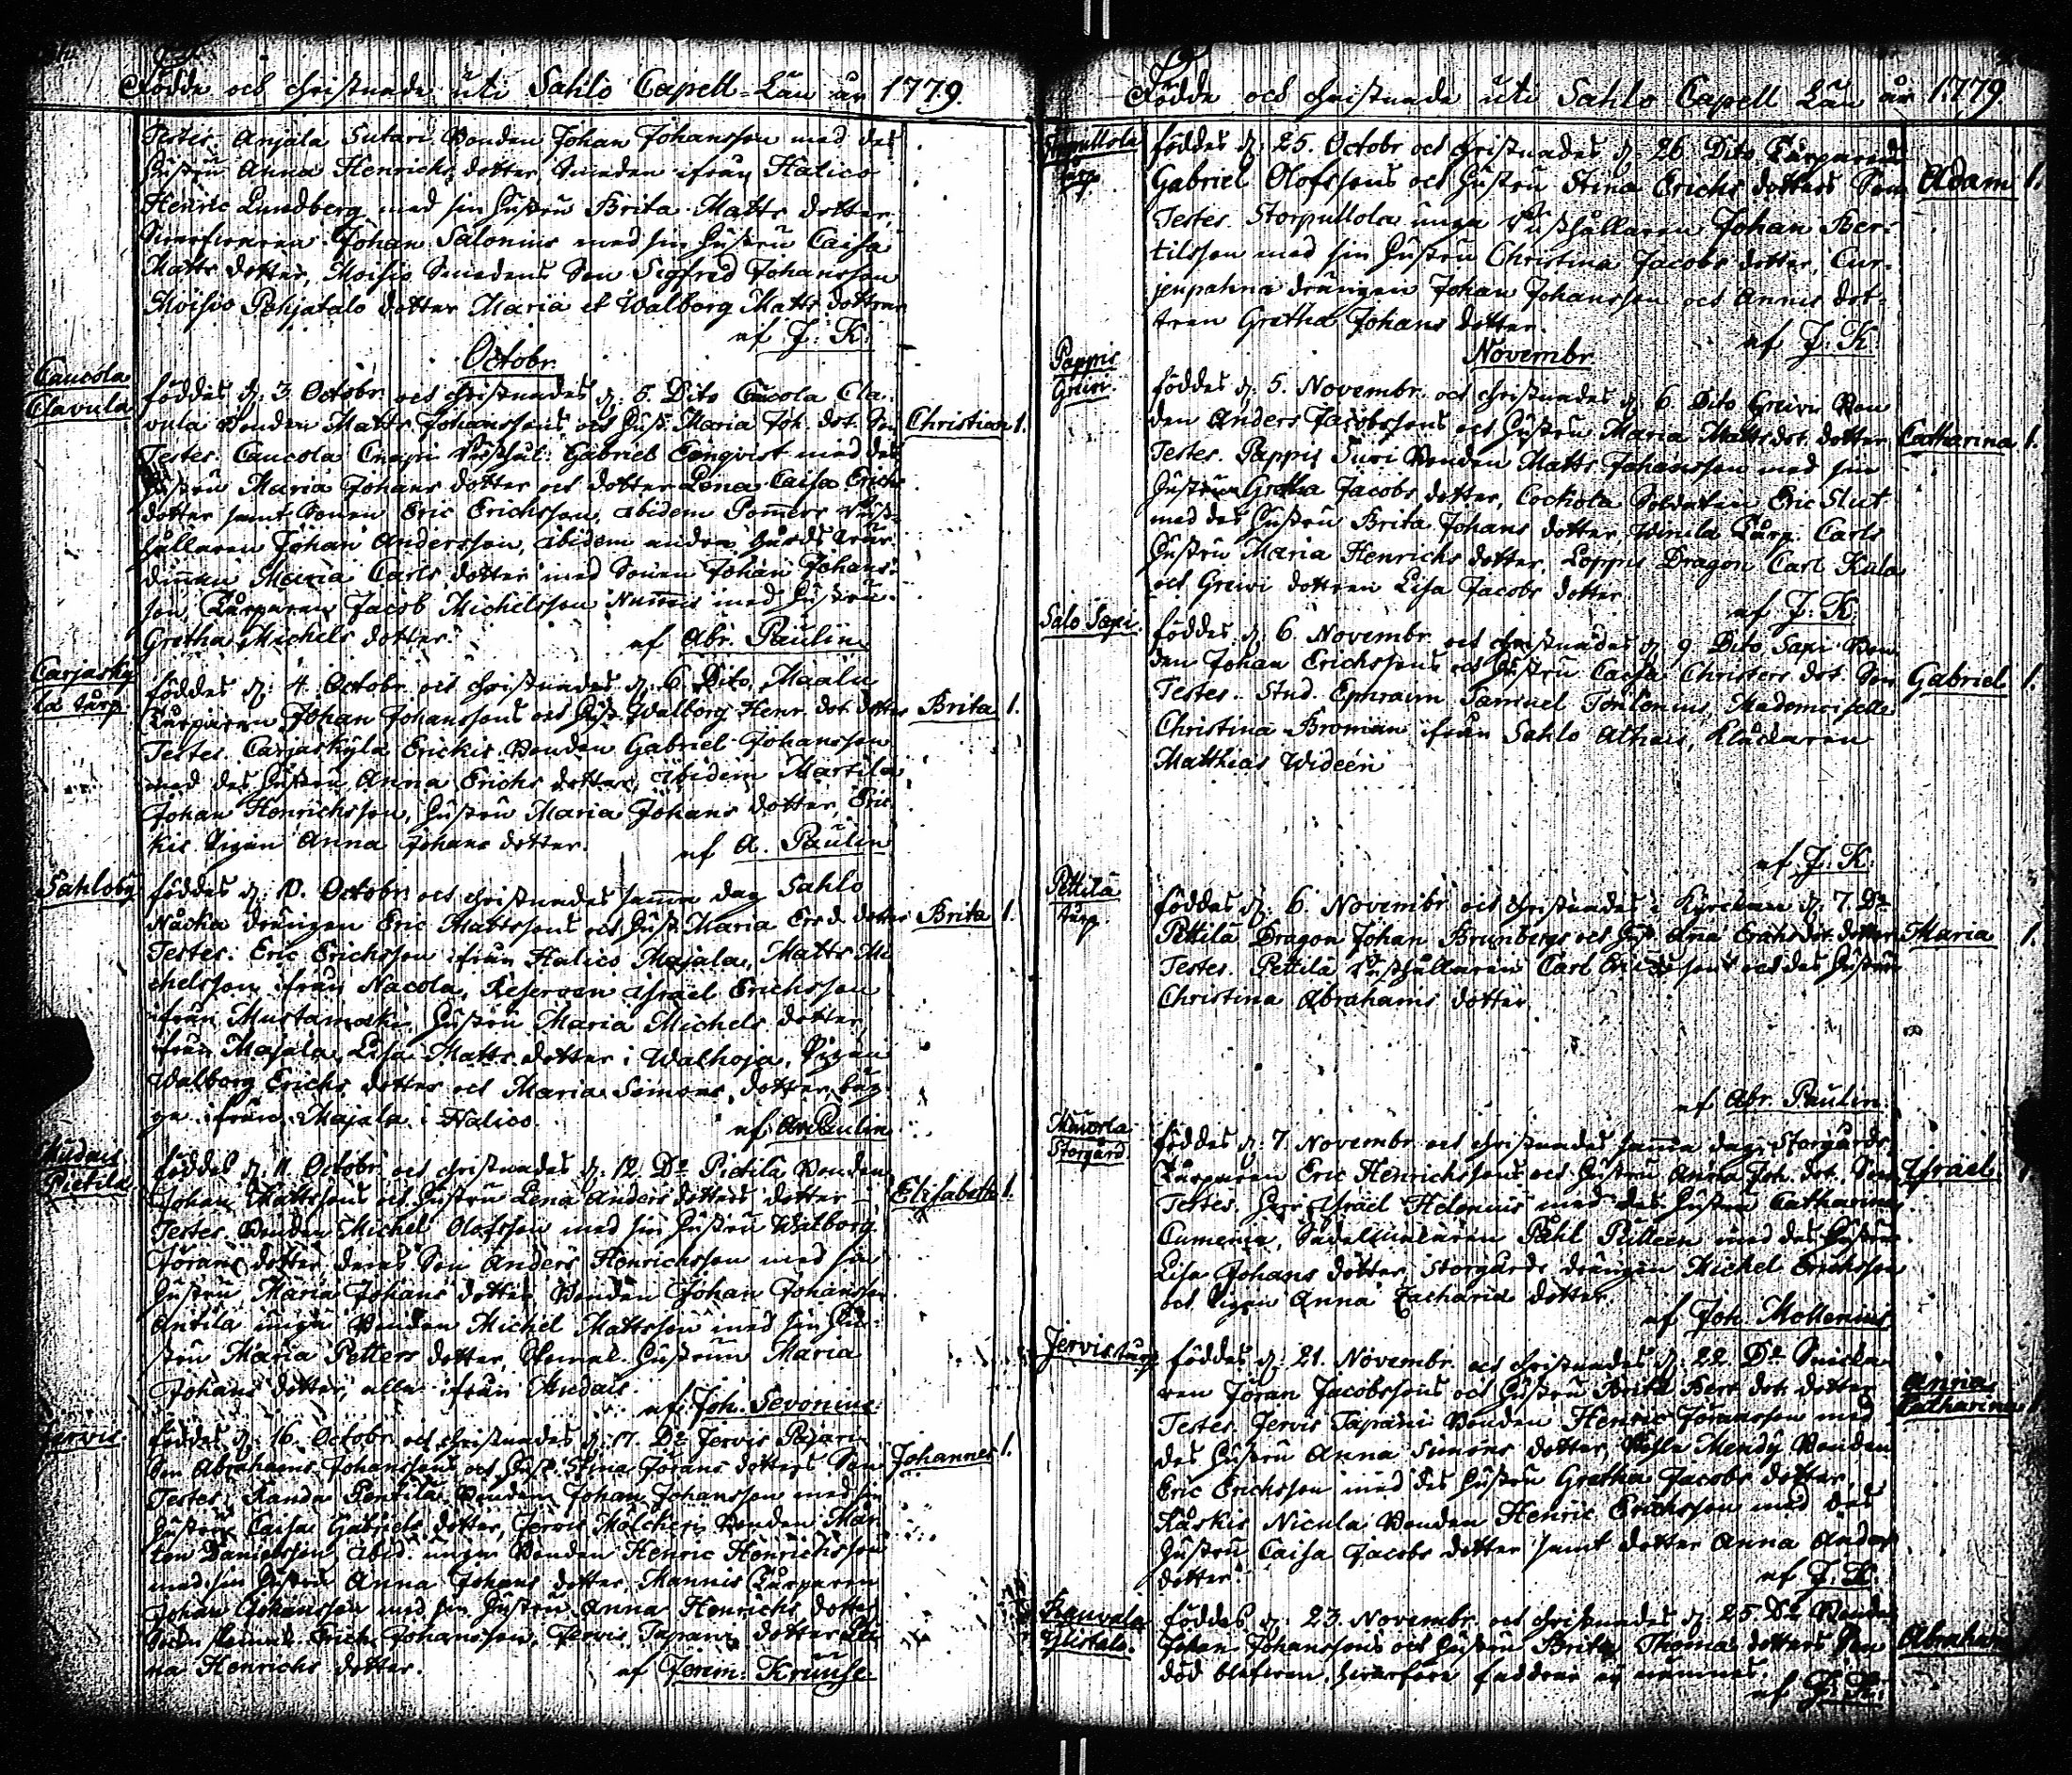 Födde och christnade uti Sahlo Capell-Län år 1779.
Testes. Anjala Sutari Bonden Johan Johansson med des
Hustru Anna Henrichs dotter, Smeden ifrån Halico
Henric Lundberg med sin Hustru Brita Matts dotter,
Johan Salonius med sin Hustru Caisa
Matts dotter, Moisio Smedens Son Sigfred Johansson
Moisio Pohjatalo dotter Maria et Walborg Matts dottrar
af J. K.
Octobr.
Caucola
Clavula
föddes d: 3. Octobr. och christnades d: 5. Dito Caucola Cla-
vula Bonden Matts Johanssons och Hust. Maria Joh. dot. Son
Christian 1.
Testes. Caucola Cnapi Rusthål: Gabriel Enqvist med des
Hustru Maria Johans dotter och dotter Lena Caisa Erichs
dotter samt Sonen Eric Erichsson, ibidem Pomers Rust-
hållaren Johan Andersson, ibidem andra Gårds
Maria Carls dotter med Sonen Johan Johans-
son, Torparen Jacob Michelsson Nummis med Hustru
Gretha Michels dotter. af Abr. Paulin
Carjasky
la torp.
föddes d: 4. Octobr. och christnades d: 6. Dito Maalu
Torparen Johan Johanssons och Hust. Walborg Henr. dot. dotter
Brita 1.
Testes. Carjaskyla Erickis Bonden Gabriel Johansson
med des Hustru Anna Erichs dotter, ibidem Martila
Johan Henrichsson, Hustru Maria Johans dotter, Eric-
kis Pigan Anna Johans dotter. af A. Paulin
Sahloby
föddes d: 10. Octobr. och christnades samma dag Sahlo
Näcka drängen Eric Mattssons och Hust. Maria Ers d. dotter
Brita 1.
Testes. Eric Erichsson ifrån Halico Majala, Matts Mi-
chelsson ifrån Nacola, Reserven Israel Erichsson
ifrån Mustamäki Hustru Maria Michels dotter
ifrån Majala, Lisa Matts dotter i Walhoja, Pigan
Walborg Erichs dotter och Maria Simons dotter, bäg-
ge ifrån Majala i Halico. af A. Paulin
Pietila
föddes d: 11. Octobr. och christnades d: 12. Do Pietila Bonden
Johan Mattssons och Hustru Lena Anders dotters dotter
Elisabeth 1.
Testes. Bonden Michel Olofsson med sin Hustru Walborg
Jörans dotter deras Son Anders Henrichsson med sin
Hustru Maria Johans dotter Bonden Johan Johansson
Antila unga Bonden Michel Mattsson med sin Hu-
stru Maria Petters dotter, Hustrun Maria
Johans dotter, alla ifrån
af Joh. Sevonius
Jervis
föddes d: 16. Octobr. och christnades d: 17. Do Jervis Pajari
Son Abrahams Johanssons och Hust. Stina Jörans dotters Son
Johannes 1.
Testes. Kanda Pentila Bonden Johan Johansson med sin
Hustru Caisa Gabriels dotter, Jervis Mölckeri Bonden Mår-
ten Danielsson, ibid. unga Bonden Henric Henrichsson
med sin Hustru Anna Johans dotter, Mannis Torparen
Johan Johansson med sin Hustru Anna Henrichs dotter
Erich Johansson, Jervis Tapani dotter
na Henrichs dotter. af Jerem: Kruuse
Födde och christnade uti Sahlo Capell Län år 1779
Storpullola
torp
föddes d: 25. Octobr. och christnades d: 26. Dito Torparen
Gabriel Olofssons och Hustru Stina Erichs dotters Son
Adam 1.
Testes. Storpullola unga Rusthållaren Johan Ber-
tilsson med sin Hustru Christina Jacobs dotter, Cur-
jenpahna drängen Johan Johansson och Annis dot-
tren Gretha Johans dotter.
af J. K.
Novembr.
Pappis
Greivi
föddes d: 5. Novembr. och christnades d: 6. Dito Greivi Bon-
den Anders Jacobssons och Hustru Maria Matts dot. dotter
Catharina 1.
Testes. Pappis Juri Bonden Matts Johansson med sin
Hustru Gretha Jacobs dotter, Cockola Soldaten Eric Slut
med des Hustru Brita Johans dotter, Torp. Carls
Hustru Maria Henrichs dotter, Loppis Dragon Carl Kula
och Greivi dottren Lisa Jacobs dotter.
af J. K.
Salo Sapi.
föddes d: 6. Novembr. och christnades d: 9. Dito Sapi Bon-
den Johan Erichssons och Hustru Caisa Christers dot. Son
Gabriel 1.
Testes. Stud. Ephraim Samuel Mademoiselle
Christina Broman ifrån Sahlo Klåckaren
Matthias Wideen
af J. K.
Pettilä
torp.
föddes d: 6. Novembr. och christnades i Kyrckan d: 7. Do
Pettilä Dragon Johan Brunbergs och Hust. Ana Erichs dot. dotter
Maria 1.
Testes. Pettilä Rusthållaren Carl och des Hustru
Christina Abrahams dotter.
af Abr. Paulin.
Storgård
föddes d: 7. Novembr. och christnades samma dag, Storgårds
Torparen Eric Henrichssons och Hustru Anna Joh. dot. Son
Israel 1.
Testes. Herr Israel Helenius med des Hustru Catharina
Cumenia, Sadelmakaren Pahl med des Hustru
Lisa Johans dotter, Storgårds drängen Michel Erichsson
och Pigan Anna Zacharia dotter.
af Joh. Mollenius
Jervis torp
föddes d: 21. Novembr. och christnades d: 22. Do Snicka-
ren Jöran Jacobssons och Hustru Brita Bert. dot. dotter
Anna
Catharina 1.
Testes. Jervis Tapani Bonden Henric Jöransson med
des Hustru Anna Simons dotter, Mendy Bonden
Eric Erichsson med des Hustru Gretha Jacobs dotter
Kaskis Nicula Bonden Henric Erichsson med des
Hustru Caisa Jacobs dotter samt dotter Anna Anders
dotter.
af J. K.
Kauvala
Ylistalo.
föddes d: 23. Novembr. och christnades d: 25. Do Bonden
Johan Johanssons och Hustru Brita Thomas dotters Son
Abraham
död blefven, hvarföre faddrar ej nämnes.
af J. K.